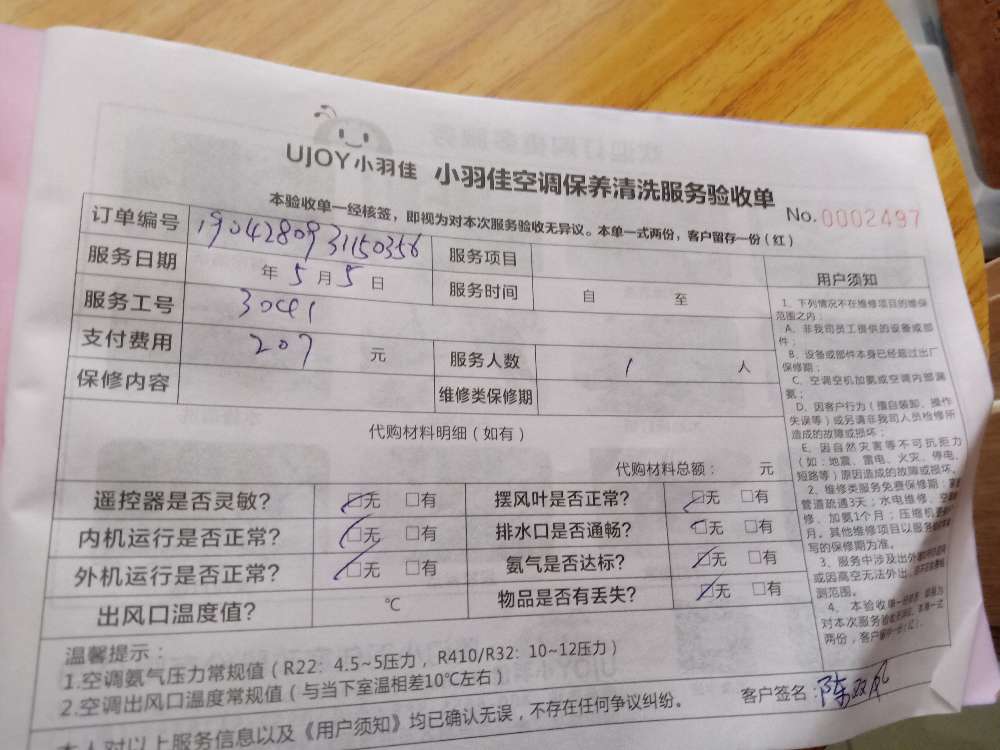 UJOY小羽佳 小羽佳空调保养清洗服务验收单
No.0002497
本验收单一经核签，即视为对本次服务验收无异议。本单一式两份，客户留存一份（红）
订单编号 1904280931150356 服务项目
服务日期 年5月5日 服务时间 自 至
服务工号 30c41
支付费用 207 元 服务人数 1 人
保修内容 维修类保修期
代购材料明细（如有）
代购材料总额： 元
遥控器是否灵敏? ☑无 □有 摆风叶是否正常? ☑无 □有
内机运行是否正常? ☑无 □有 排水口是否通畅? ☑无 □有
外机运行是否正常? ☑无 □有 氨气是否达标? ☑无 □有
出风口温度值? ℃ 物品是否有丢失? ☑无 □有
用户须知
1、下列情况不在维修项目的维保
范围之内：
A、非我司员工提供的设备或部
件；
B、设备或部件本身已经超过出厂
保修期；
C、空调空机加氨或空调内部漏
氨；
D、因客户行为（擅自装卸、操作
失误等）或另请非我司人员检修所
造成的故障或损坏；
E、因自然灾害等不可抗拒力
（如:地震、雷电、火灾、停电、
短路等）原因造成的故障或损坏。
2、维修类服务免费保修期：
管道疏通3天；水电维修、
修、加氨1个月；压缩机
月。其他维修项目以服务
写的保修期为准。
3、服务中涉及出外
或因高空无法外出，
测范围。
4、本验收单一经
对本次服务验收无异议。本单一式
两份，客户留存一份（红）。
温馨提示：
1.空调氨气压力常规值（R22：4.5~5压力，R410/R32：10~12压力）
2.空调出风口温度常规值（与当下室温相差10℃左右）
本人对以上服务信息以及《用户须知》均已确认无误，不存在任何争议纠纷。
客户签名：陈双凤